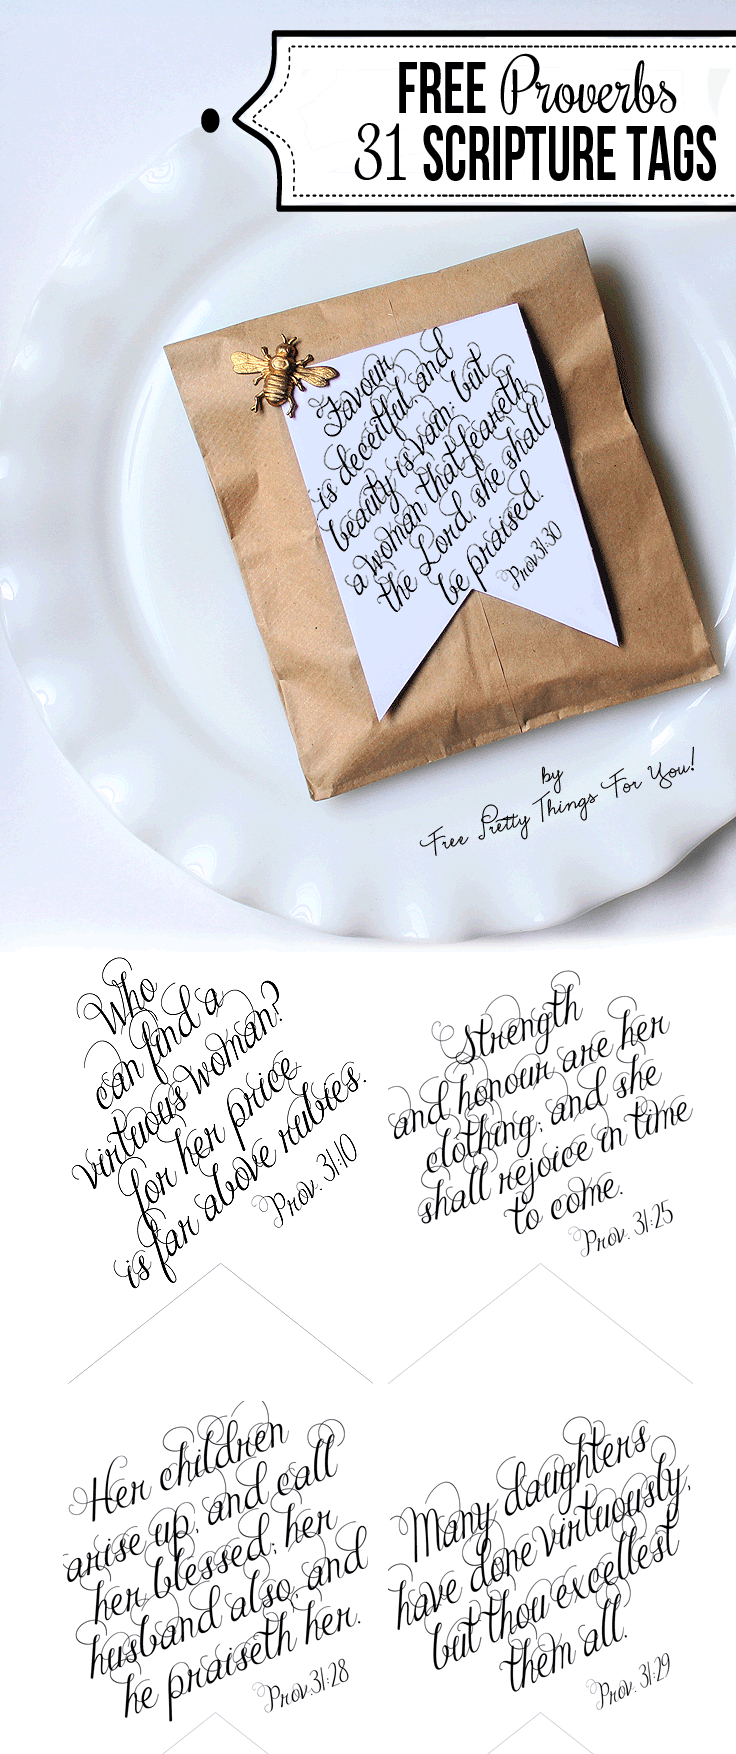 FREE Proverbs
31 SCRIPTURE TAGS
Favour
is deceitful, and
beauty is vain: but
a woman that feareth
the Lord, she shall
be praised.
Prov.31:30
by
Free Pretty Things For You!
Who
can find a
virtuous woman?
for her price
is far above rubies.
Prov. 31:10
Strength
and honour are her
clothing; and she
shall rejoice in time
to come.
Prov. 31:25
Her children
arise up, and call
her blessed; her
husband also, and
he praiseth her.
Prov.31:28
Many daughters
have done virtuously,
but thou excellest
them all.
Prov. 31:29